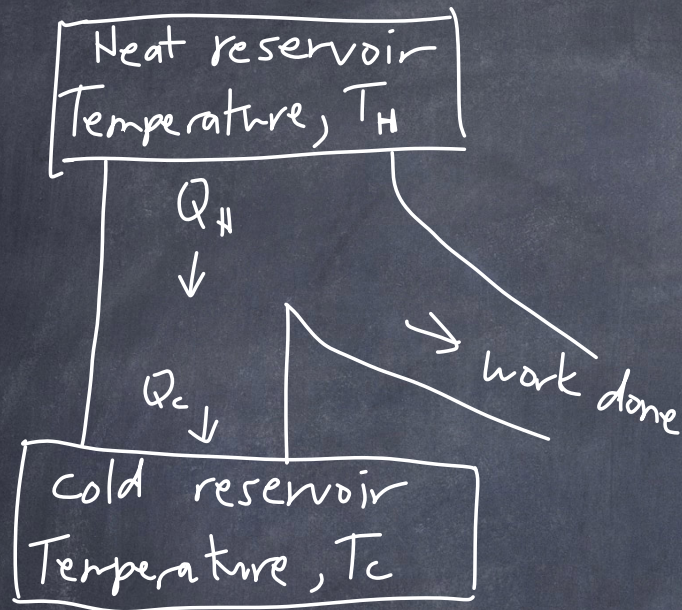 Heat reservoir
Temperature, T_H
Q_H
↓
→
Q_c ↓
work done
cold reservoir
Temperature, T_c